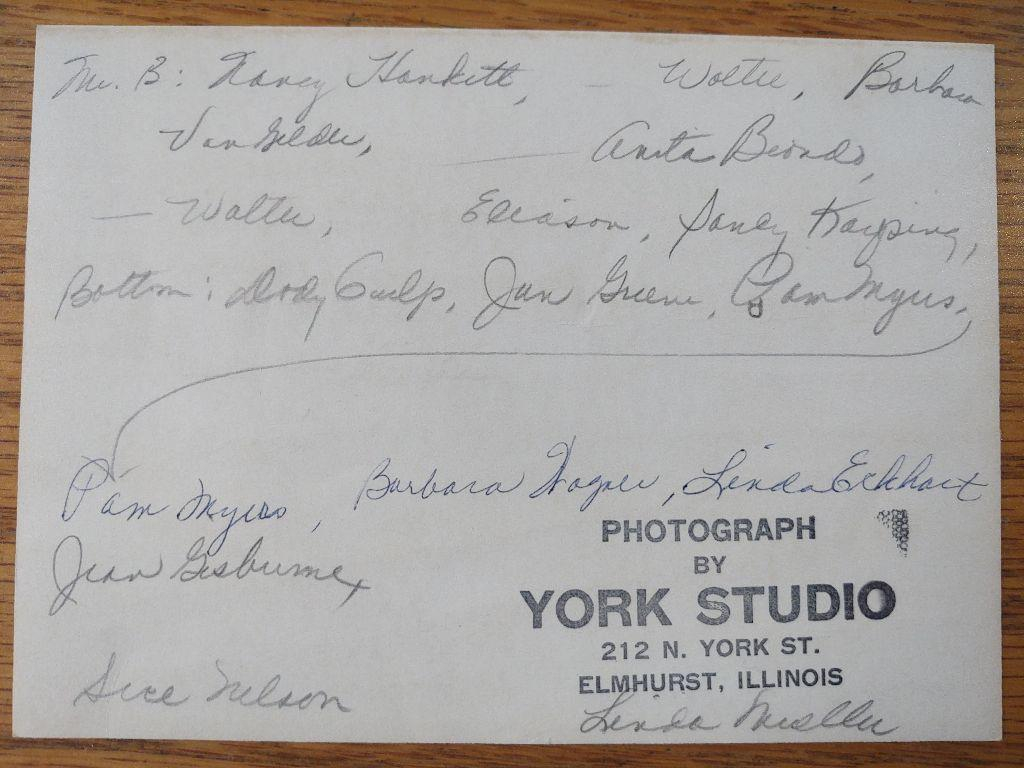 Mr. B: Nancy Hankett, — Wolter, Barbara
Van Gelder, — Anita Biondo,
— Walter, Eliason, Nancy Karping,
Bottom: Dody Culp, Jan Greene, Pam Myers,
Pam Myers, Barbara Wagner, Linda Eckhart
PHOTOGRAPH
BY
YORK STUDIO
Jean Gisburne,
212 N. YORK ST.
ELMHURST, ILLINOIS
Sue Nelson
Linda Mueller